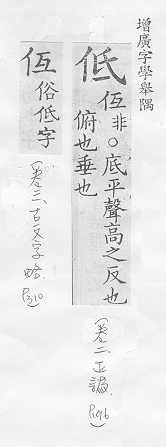 增廣字學舉隅
低 伍非○底平聲高之反也
俯也垂也
(卷二、正譌,P.196)
仾 俗低字
(卷三、古文字略,P.310)